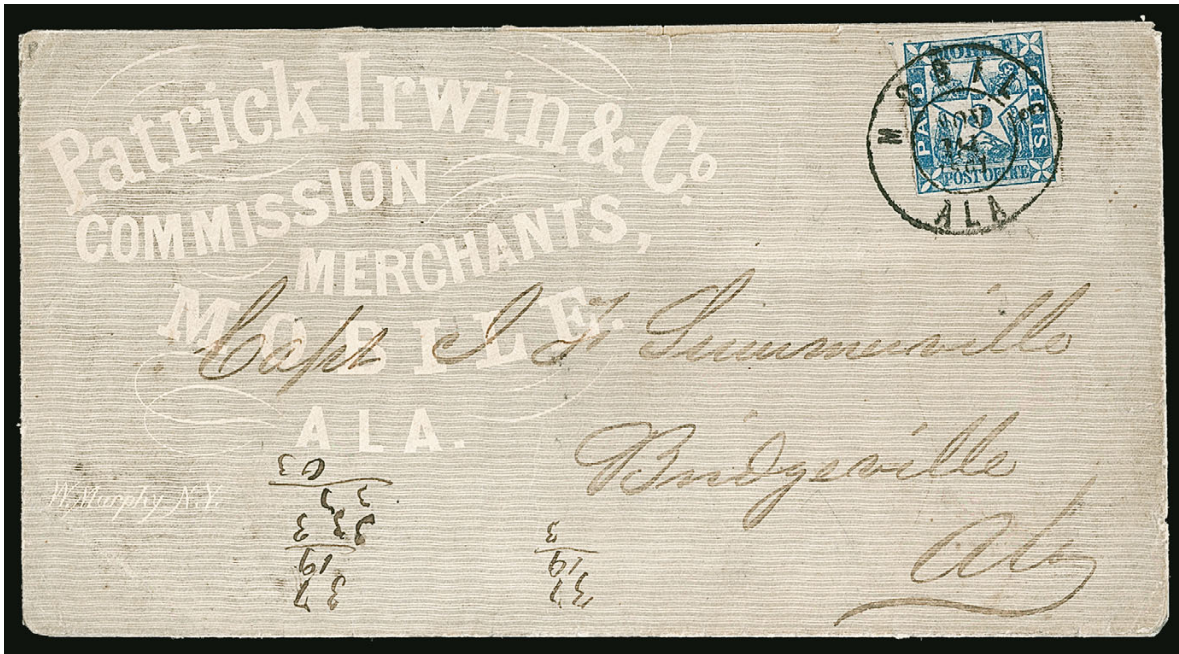 Patrick Irwin & Co.
COMMISSION
MERCHANTS,
MOBILE.
ALA.
W. Murphy N.Y.
MOBILE
PAID
5
CENTS
POST OFFICE
MOBILE
NOV
ALA
Capt S F Summerville
Bridgeville
Ala
37
19
3
37
19
3